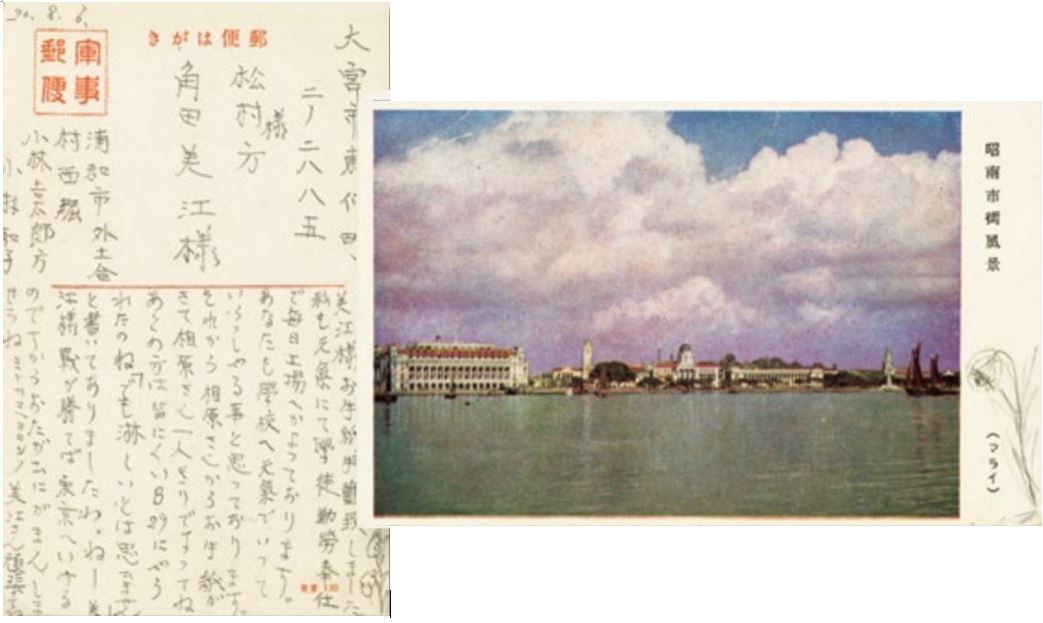 20. 8. 6.
軍事
郵便
郵便はがき
大宮市東
二ノ二八八五
松村様方
角田美江様
浦和市外土合
村西堀
小林 太郎方
小林
美江様お手紙 致しました
私も元氣にて學徒勤労奉仕
で毎日工場へかよっております。
あなたも學校へ元氣でいって
いらっしゃる事と思っております。
それから相原さんからお手紙が
きて相原さん一人きりですってね
あとの方は皆にくいB29にやら
れたのね「でも淋しいとは思
と書いてありましたわ。ねー美
江様戰が勝てば東京へいける
のですからおたがひにがまんしま
せうね 美江さん
昭南市街風景
(マライ)